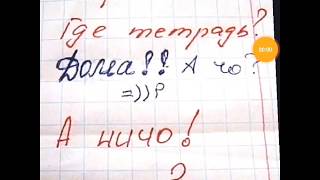 Где тетрадь?
Дома!! А чо?
=))Р
А ничо!
?